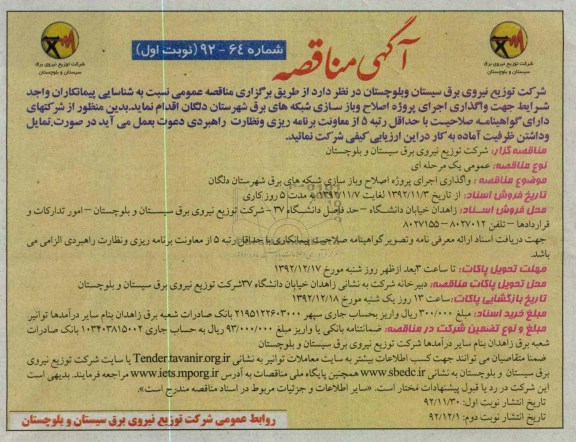 آگهی مناقصه
شماره ۶۴ - ۹۲ (نوبت اول)
شرکت توزیع نیروی برق
سیستان و بلوچستان
شرکت توزیع نیروی برق
سیستان و بلوچستان
شرکت توزیع نیروی برق سیستان وبلوچستان در نظر دارد از طریق برگزاری مناقصه عمومی نسبت به شناسایی پیمانکاران واجد
شرایط جهت واگذاری اجرای پروژه اصلاح وباز سازی شبکه های برق شهرستان دلگان اقدام نماید.بدین منظور از شرکتهای
دارای گواهینامه صلاحیت با حداقل رتبه ۵ از معاونت برنامه ریزی ونظارت راهبردی دعوت بعمل می آید در صورت.تمایل
وداشتن ظرفیت آماده به کار در این ارزیابی کیفی شرکت نمائید.
مناقصه گزار: شرکت توزیع نیروی برق سیستان و بلوچستان
نوع مناقصه: عمومی یک مرحله ای
موضوع مناقصه : واگذاری اجرای پروژه اصلاح وباز سازی شبکه های برق شهرستان دلگان
تاریخ فروش اسناد: از تاریخ ۱۳۹۲/۱۱/۳ لغایت ۱۳۹۲/۱۱/۷ به مدت ۵ روز کاری
محل فروش اسناد: زاهدان خیابان دانشگاه – حد فاصل دانشگاه ۳۷ - شرکت توزیع نیروی برق سیستان و بلوچستان – امور تدارکات و
قراردادها – تلفن ۸۰۲۷۰۱۲ – ۸۰۲۷۱۵۵
جهت دریافت اسناد ارائه معرفی نامه و تصویر گواهینامه صلاحیت پیمانکاری با حداقل رتبه ۵ از معاونت برنامه ریزی ونظارت راهبردی الزامی می
باشد.
مهلت تحویل پاکات: تا ساعت ۳بعد ازظهر روز شنبه مورخ ۱۳۹۲/۱۲/۱۷
محل تحویل پاکات مناقصه: دبیرخانه شرکت به نشانی زاهدان خیابان دانشگاه ۳۷شرکت توزیع نیروی برق سیستان و بلوچستان
تاریخ بازگشایی پاکات: ساعت ۱۳ روز یک شنبه مورخ ۱۳۹۲/۱۲/۱۸
مبلغ خرید اسناد: مبلغ ۳۰۰/۰۰۰ ریال واریز بحساب جاری سپهر ۲۱۹۵۱۲۲۶۰۳۰۰۰ بانک صادرات شعبه برق زاهدان بنام سایر درآمدها توانیر
مبلغ و نوع تضمین شرکت در مناقصه: ضمانتنامه بانکی یا واریز مبلغ ۹۳/۰۰۰/۰۰۰ ریال به حساب جاری ۱۰۳۴۰۳۸۱۵۰۰۲ بانک صادرات
شعبه برق زاهدان بنام سایر درآمدها شرکت توزیع نیروی برق سیستان و بلوچستان
ضمنا متقاضیان می توانند جهت کسب اطلاعات بیشتر به سایت معاملات توانیر به نشانی Tender.tavanir.org.ir یا سایت شرکت توزیع نیروی
برق سیستان و بلوچستان به نشانی www.sbedc.ir همچنین پایگاه ملی مناقصات به آدرس www.iets.mporg.ir مراجعه فرمایند. بدیهی است
این شرکت در رد یا قبول پیشنهادات مختار است. «سایر اطلاعات و جزئیات مربوط در اسناد مناقصه مندرج است».
تاریخ انتشار نوبت اول: ۹۲/۱۱/۳۰
تاریخ انتشار نوبت دوم: ۹۲/۱۲/۱
روابط عمومی شرکت توزیع نیروی برق سیستان و بلوچستان